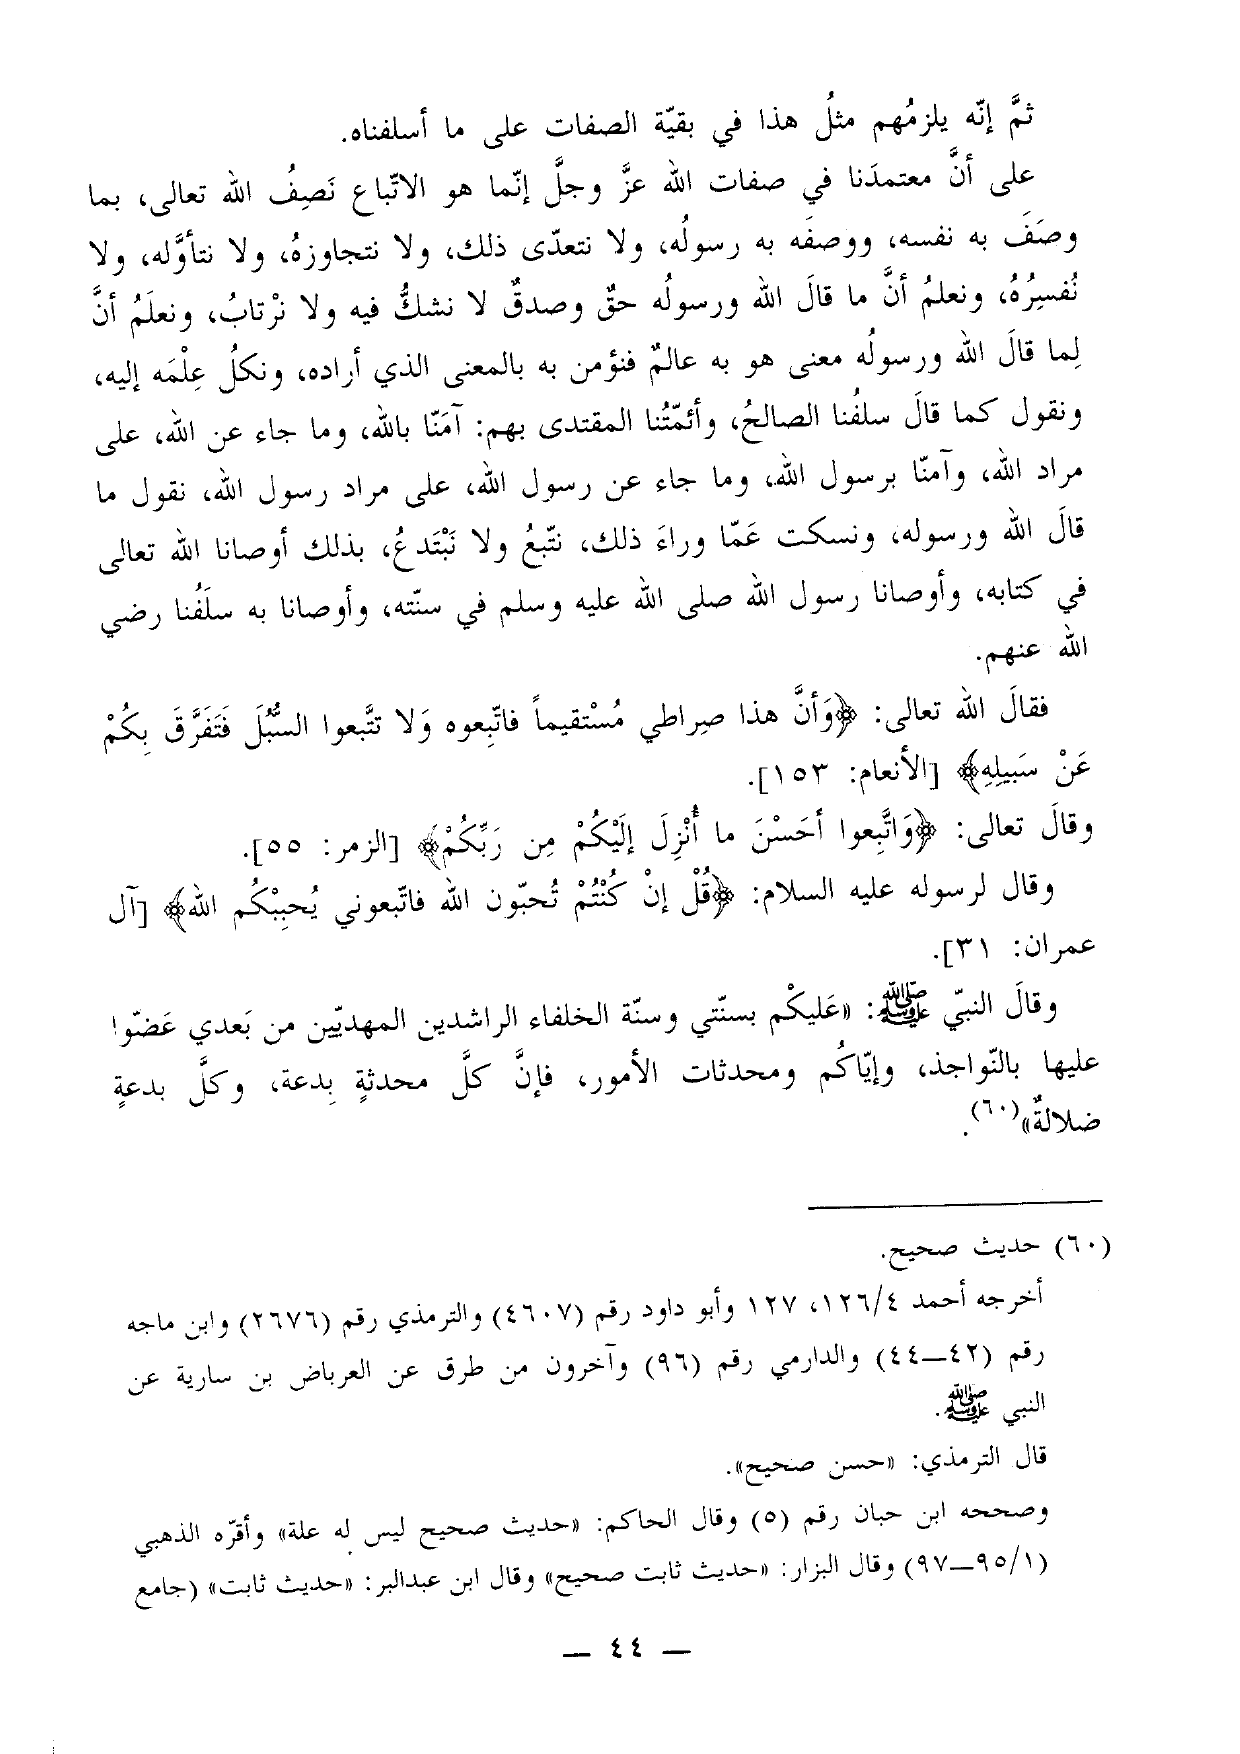 ثمَّ إنّه يلزمُهم مثلُ هذا في بقيّة الصفات على ما أسلفناه.
على أنَّ معتمدَنا في صفات الله عزَّ وجلَّ إنّما هو الاتّباع نَصِفُ الله تعالى، بما
وصَفَ به نفسه، ووصفَه به رسولُه، ولا نتعدّى ذلك، ولا نتجاوزهُ، ولا نتأوَّله، ولا
نُفسِرُهُ، ونعلمُ أنَّ ما قالَ الله ورسولُه حقٌ وصدقٌ لا نشكُّ فيه ولا نرْتابُ، ونعلَمُ أنَّ
لِما قالَ الله ورسولُه معنى هو به عالمٌ فنؤمن به بالمعنى الذي أراده، ونكلُ عِلْمَه إليه،
ونقول كما قالَ سلفُنا الصالحُ، وأئمّتُنا المقتدى بهم: آمَنّا بالله، وما جاء عن الله، على
مراد الله، وآمنّا برسول الله، وما جاء عن رسول الله، على مراد رسول الله، نقول ما
قالَ الله ورسوله، ونسكت عَمّا وراءَ ذلك، نتّبعُ ولا نَبْتَدعُ، بذلك أوصانا الله تعالى
في كتابه، وأوصانا رسول الله صلى الله عليه وسلم في سنّته، وأوصانا به سلَفُنا رضي
الله عنهم.
فقالَ الله تعالى: ﴿وَأنَّ هذا صِراطي مُسْتقيماً فاتّبِعوه وَلا تتَّبعوا السُّبُلَ فَتَفَرَّقَ بِكُمْ
عَنْ سَبيلِهِ﴾ [الأنعام: ١٥٣].
وقالَ تعالى: ﴿وَاتَّبِعوا أحَسْنَ ما أُنْزِلَ إلَيْكُمْ مِن رَبِّكُمْ﴾ [الزمر: ٥٥].
وقال لرسوله عليه السلام: ﴿قُلْ إنْ كُنْتُمْ تُحبّون الله فاتّبعوني يُحبِبْكُم الله﴾ [آل
عمران: ٣١].
وقالَ النبيّ ﷺ: «عَليكْم بسنّتي وسنّة الخلفاء الراشدين المهديّين من بَعدي عَضّوا
عليها بالنّواجذ، وإيّاكُم ومحدثات الأمور، فإنَّ كلَّ محدثةٍ بِدعة، وكلَّ بدعةٍ
ضلالةٌ»(٦٠).
(٦٠) حديث صحيح.
أخرجه أحمد ١٢٦/٤، ١٢٧ وأبو داود رقم (٤٦٠٧) والترمذي رقم (٢٦٧٦) وابن ماجه
رقم (٤٢—٤٤) والدارمي رقم (٩٦) وآخرون من طرق عن العرباض بن سارية عن
النبي ﷺ.
قال الترمذي: «حسن صحيح».
وصححه ابن حبان رقم (٥) وقال الحاكم: «حديث صحيح ليس له علة» وأقرّه الذهبي
(٩٥/١—٩٧) وقال البزار: «حديث ثابت صحيح» وقال ابن عبدالبر: «حديث ثابت» (جامع
— ٤٤ —